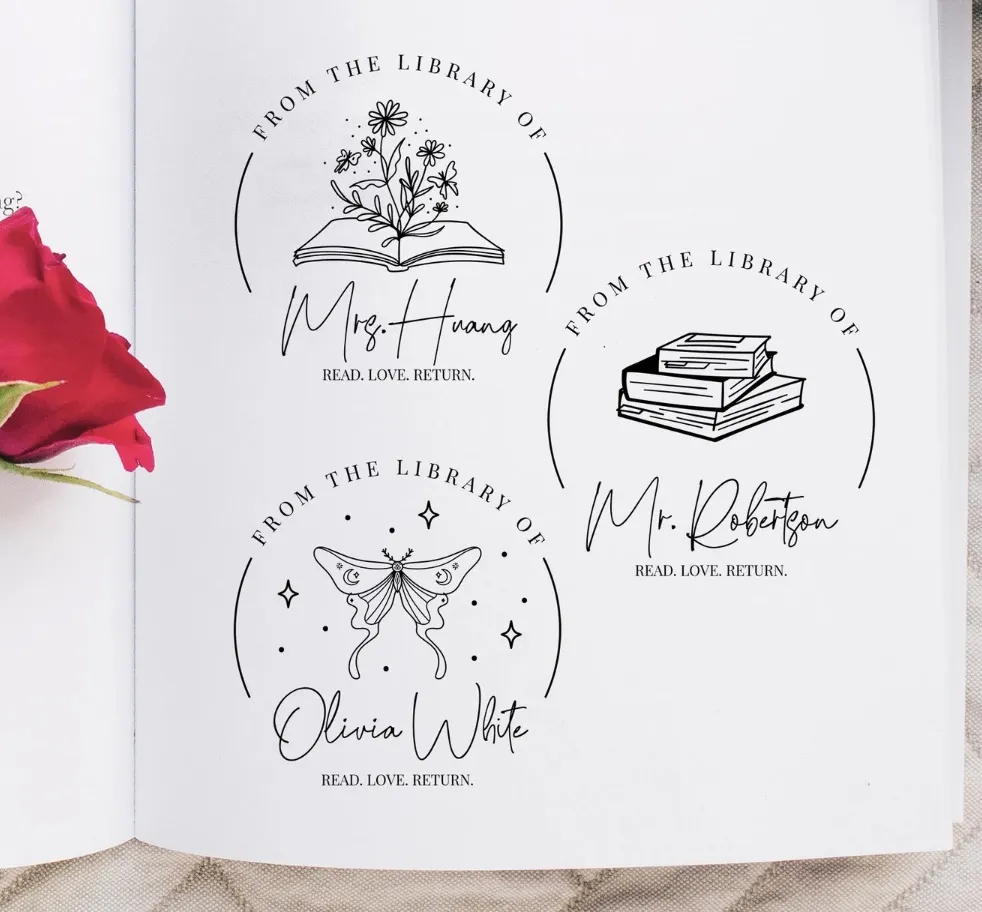 g?
FROM THE LIBRARY OF
Mrs. Huang
READ. LOVE. RETURN.
FROM THE LIBRARY OF
Mr. Robertson
READ. LOVE. RETURN.
FROM THE LIBRARY OF
Olivia White
READ. LOVE. RETURN.